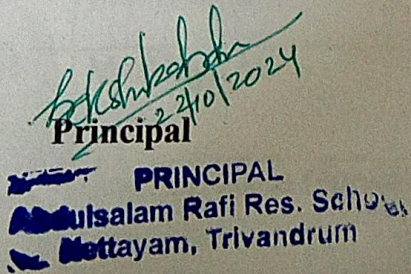 22/10/2024
Principal
PRINCIPAL
Abdulsalam Rafi Res. School
Nettayam, Trivandrum